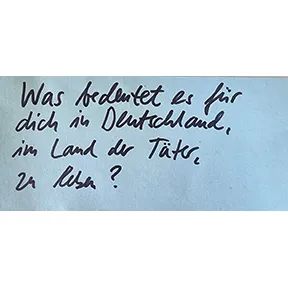 Was bedeutet es für
dich in Deutschland,
im Land der Täter,
zu leben?